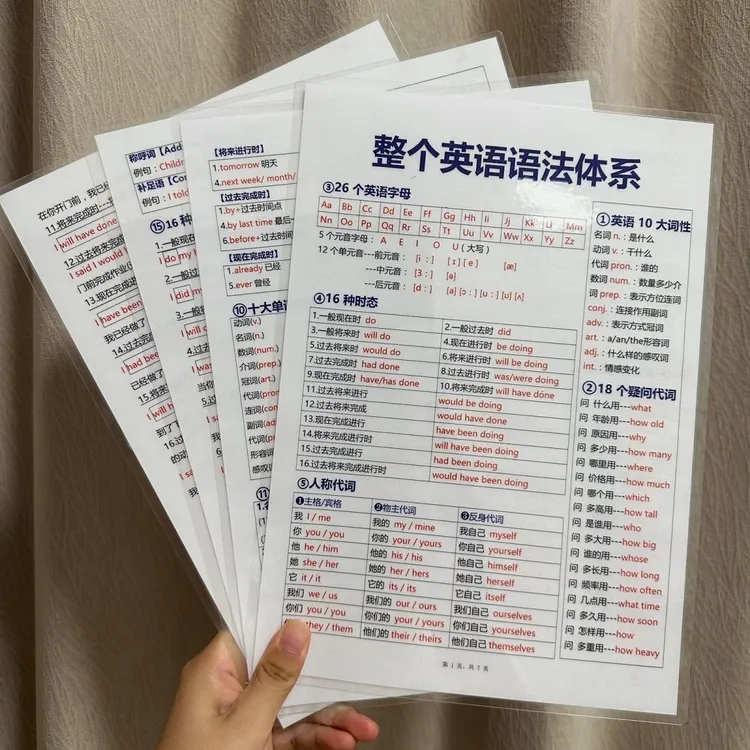 整个英语语法体系
③26 个英语字母
Aa Bb Cc Dd Ee Ff Gg Hh Ii Jj Kk Ll Mm
Nn Oo Pp Qq Rr Ss Tt Uu Vv Ww Xx Yy Zz
5 个元音字母: A E I O U (大写)
12 个单元音---前元音: [i:] [ɪ] [e] [æ]
---中元音: [3:] [ə]
---后元音:
④16 种时态
1.一般现在时 do 2.一般过去时 did
3.一般将来时 will do 4.现在进行时 be doing
5.过去将来时 would do 6.将来进行时 will be doing
7.过去完成时 had done 8.过去进行时 was/were doing
9.现在完成时 have/has done 10.将来完成时 will have done
11.过去将来进行 would be doing
12.过去将来完成 would have done
13.现在完成进行 have been doing
14.将来完成进行时 will have been doing
15.过去完成进行 had been doing
16.过去将来完成进行时 would have been doing
⑤人称代词
❶主格/宾格 ❷物主代词 ❸反身代词
我 I / me 我的 my / mine 我自己 myself
你 you / you 你的 your / yours 你自己 yourself
他 he / him 他的 his / his 他自己 himself
她 she / her 她的 her / hers 她自己 herself
它 it / it 它的 its / its 它自己 itself
我们 we / us 我们的 our / ours 我们自己 ourselves
你们 you / you 你们的 your / yours 你们自己 yourselves
they / them 他们的 their / theirs 他们自己 themselves
第 1 页, 共 7 页
①英语 10 大词性
名词 n.：是什么
动词 v.：干什么
代词 pron.：谁的
数词 num.：数量多少介
词 prep.：表示方位连词
conj.：连接作用副词
adv.：表示方式冠词
art.：a/an/the形容词
adj.：什么样的感叹词
int.：情感变化
②18 个疑问代词
问 什么用---what
问 年龄用---how old
问 原因用---why
问 多少用---how many
问 哪里用---where
问 价格用---how much
问 哪个用---which
问 多高用---how tall
问 是谁用---who
问 多大用---how big
问 谁的用---whose
问 多长用---how long
问 频率用---how often
问 几点用---what time
问 多久用---how soon
问 怎样用---how
问 多重用---how heavy
【将来进行时】
1.tomorrow 明天
4.next week/ month/
【过去完成时】
1.by+过去时间点
4.by last time 最后一
6.before+过去时间
【现在完成时】
1.already 已经
5.ever 曾经
⑩十大单词
动词(v.)
名词(n.)
数词(num.)
介词(prep.)
冠词(art.)
代词(pron
连词(con
副词(adv
代词(p
形容词
感叹词
⑪
称呼词【Add
例句：Childr
补足语【Con
例句：I told
⑮16 种
1.一般现在
I do my
2.一般过
I did my
3.一般
I will h
4.过去
在你开门前，我已经
11.将来完成时---
I will have done
12.过去将来完成
I said I would
门前完成作业(
13.现在完成
I have been
我已经做了
14.过去完
I had been
已经做了
15.将来
I will h
到了
16.过
的动
I sa